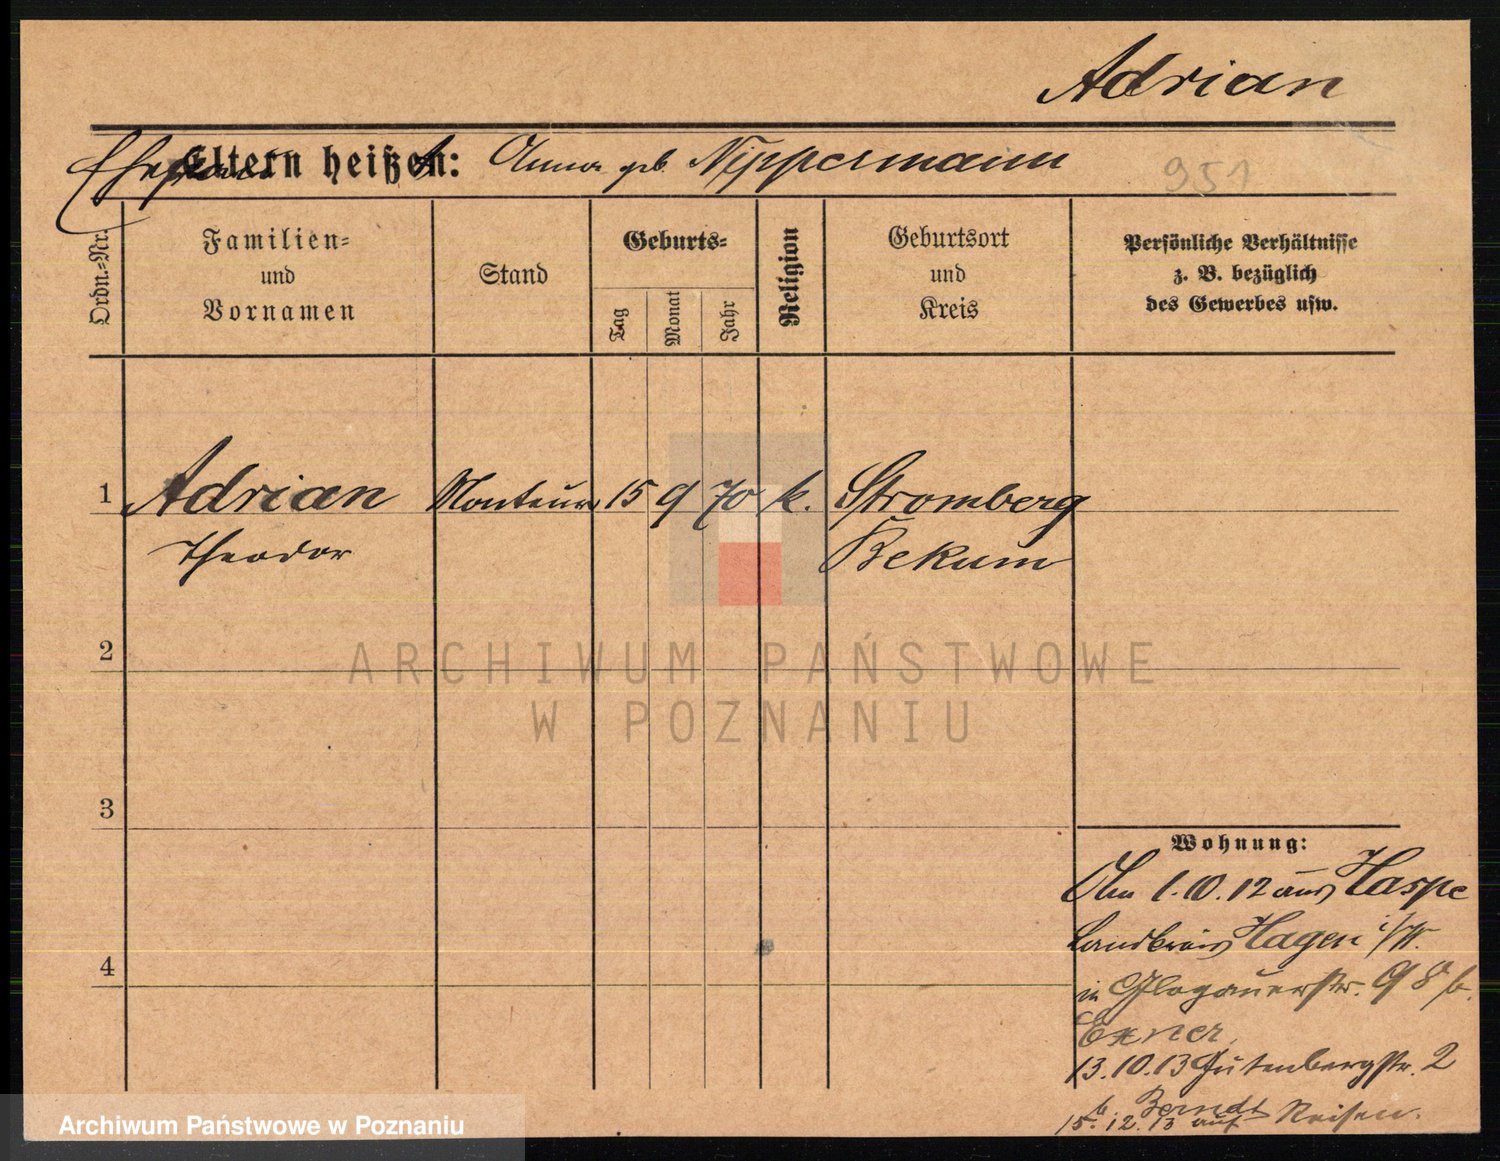 Adrian
Eltern heißen: Anna geb. Nippermann
951
Ordn.=Nr.
Familien=
und
Vornamen
Stand
Geburts=
Tag
Monat
Jahr
Religion
Geburtsort
und
Kreis
Persönliche Verhältnisse
z. B. bezüglich
des Gewerbes usw.
1 Adrian Monteur 15 9 70 k. Stromberg
Theodor Bekum
2
ARCHIWUM PAŃSTWOWE
W POZNANIU
3
Wohnung:
1.10.12 aus Haspe
Landkreis Hagen i/W.
4
in Glogauerstr. 98 b.
Exner
13.10.13 Gutenbergstr. 2
b. Berndt
15.12.13 auf Reisen.
Archiwum Państwowe w Poznaniu